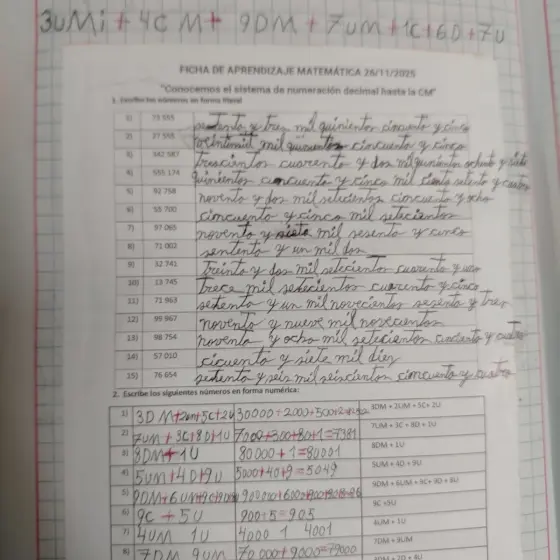 3UMi + 4C M + 9DM + 7UM + 1C + 6D + 7U
FICHA DE APRENDIZAJE MATEMÁTICA 26/11/2025
"Conocemos el sistema de numeración decimal hasta la CM"
1. Escribe los números en forma literal
1) 73 555 setenta y tres mil quinientos cincuenta y cinco
2) 27 555 mil cincuenta y cinco
3) 342 587 trescientos cuarenta y dos mil quinientos ochenta y siete
4) 555 174 quinientos cincuenta y cinco mil ciento setenta y cuatro
5) 92 758 noventa y dos mil setecientos cincuenta y ocho
6) 55 700 cincuenta y cinco mil setecientos
7) 97 065 noventa y siete mil sesenta y cinco
8) 71 002 sententa y un mil dos
9) 32 741 treinta y dos mil setecientos cuarenta y uno
10) 13 745 trece mil setecientos cuarenta y cinco
11) 71 963 setenta y un mil novecientos sesenta y tres
12) 99 967 noventa y nueve mil novecientos
13) 98 754 noventa y ocho mil setecientos cincuenta y cuatro
14) 57 010 cicuenta y siete mil diez
15) 76 654 setenta y seis mil seiscientos cincuenta y cuatro
2. Escribe los siguientes números en forma numérica:
1) 3DM+2um+5C+2U 30000+2000+500+2 3DM + 2UM + 5C+ 2U
2) 7UM + 3C+8D+1U 7000+300+80+1=7381 7UM + 3C + 8D + 1U
3) 8DM+1U 80000+1=80001 8DM + 1U
4) 5UM+4D+9U 5000+40+9=5049 5UM + 4D + 9U
5) 9DM+6UM+9C+ 9DM + 6UM + 9C+ 9D + 6U
6) 9C + 5U 900+5=905 9C +5U
7) 4UM 1U 4000 1 4001 4UM + 1U
8) 7DM 9UM 70000+9000=79000 7DM + 9UM